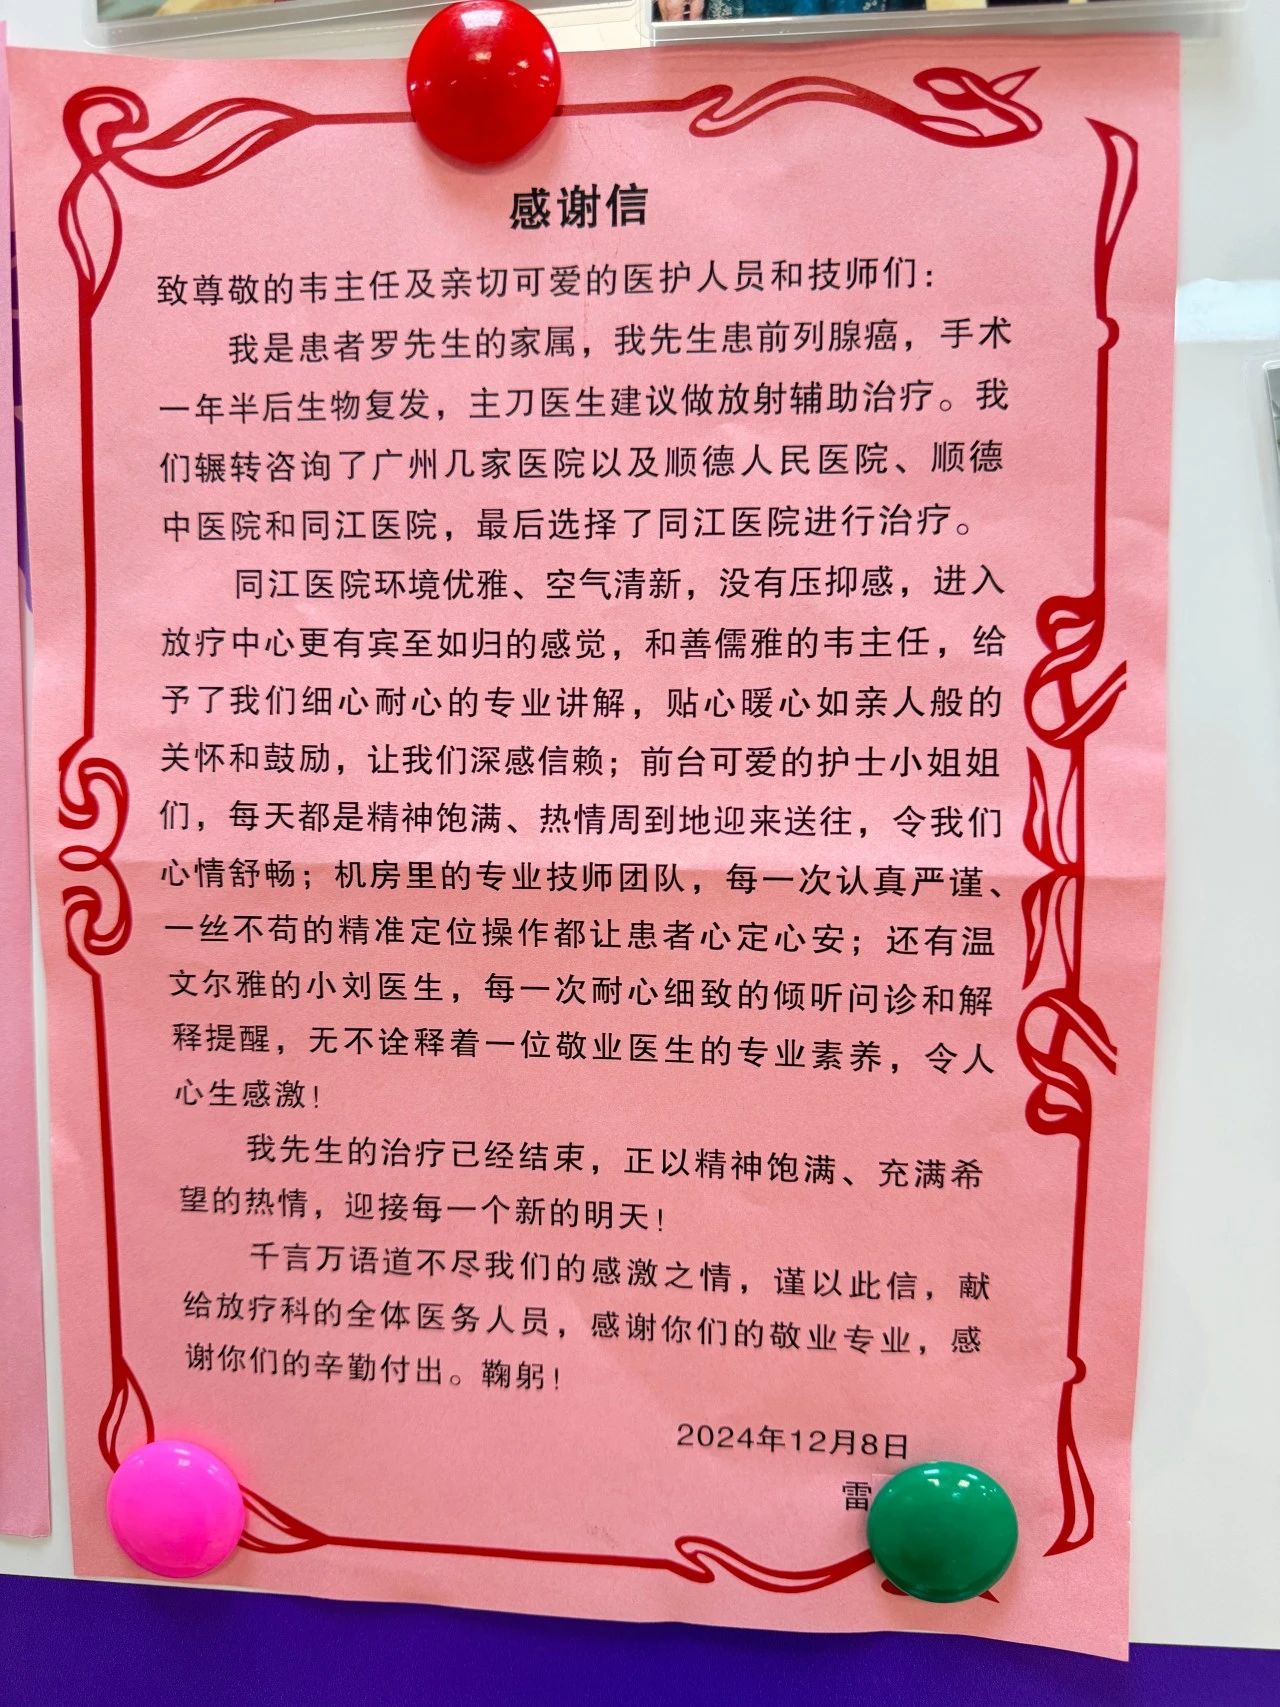 感谢信
致尊敬的韦主任及亲切可爱的医护人员和技师们：
我是患者罗先生的家属，我先生患前列腺癌，手术
一年半后生物复发，主刀医生建议做放射辅助治疗。我
们辗转咨询了广州几家医院以及顺德人民医院、顺德
中医院和同江医院，最后选择了同江医院进行治疗。
同江医院环境优雅、空气清新，没有压抑感，进入
放疗中心更有宾至如归的感觉，和善儒雅的韦主任，给
予了我们细心耐心的专业讲解，贴心暖心如亲人般的
关怀和鼓励，让我们深感信赖；前台可爱的护士小姐姐
们，每天都是精神饱满、热情周到地迎来送往，令我们
心情舒畅；机房里的专业技师团队，每一次认真严谨、
一丝不苟的精准定位操作都让患者心定心安；还有温
文尔雅的小刘医生，每一次耐心细致的倾听问诊和解
释提醒，无不诠释着一位敬业医生的专业素养，令人
心生感激！
我先生的治疗已经结束，正以精神饱满、充满希
望的热情，迎接每一个新的明天！
千言万语道不尽我们的感激之情，谨以此信，献
给放疗科的全体医务人员，感谢你们的敬业专业，感
谢你们的辛勤付出。鞠躬！
2024年12月8日
雷